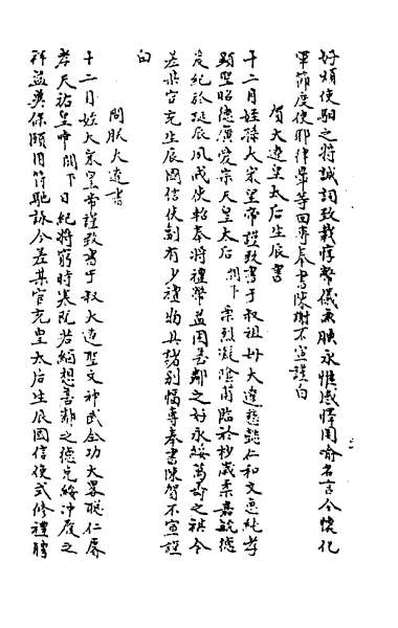 好煩使馹之將誠詞致載厚幣儀兼腆永惟感懌罔喻名言今懷化
軍節度使耶律畢等回專奉書陳謝不宣謹白
賀大遼皇太后生辰書
十二月姪孫大宋皇帝謹致書于叔祖母大遼慈懿仁和文惠純孝
顯聖昭德廣愛宗天皇太后闕下栗烈凝陰甫臨於杪歲柔嘉毓德
爰紀於誕辰夙戒使軺奉將禮幣益固善鄰之好永綏萬壽之祺今
差某官充生辰國信使副有少禮物具諸別幅專奉書陳賀不宣謹
白
問候大遼書
十二月姪大宋皇帝謹致書于叔大遼聖文神武全功大畧聰仁睿
孝天祐皇帝闕下日紀將窮時寒阮若緬想善鄰之德克綏沖履之
祥益冀保頤用符馳詠今差某官充皇太后生辰國信使式修禮聘